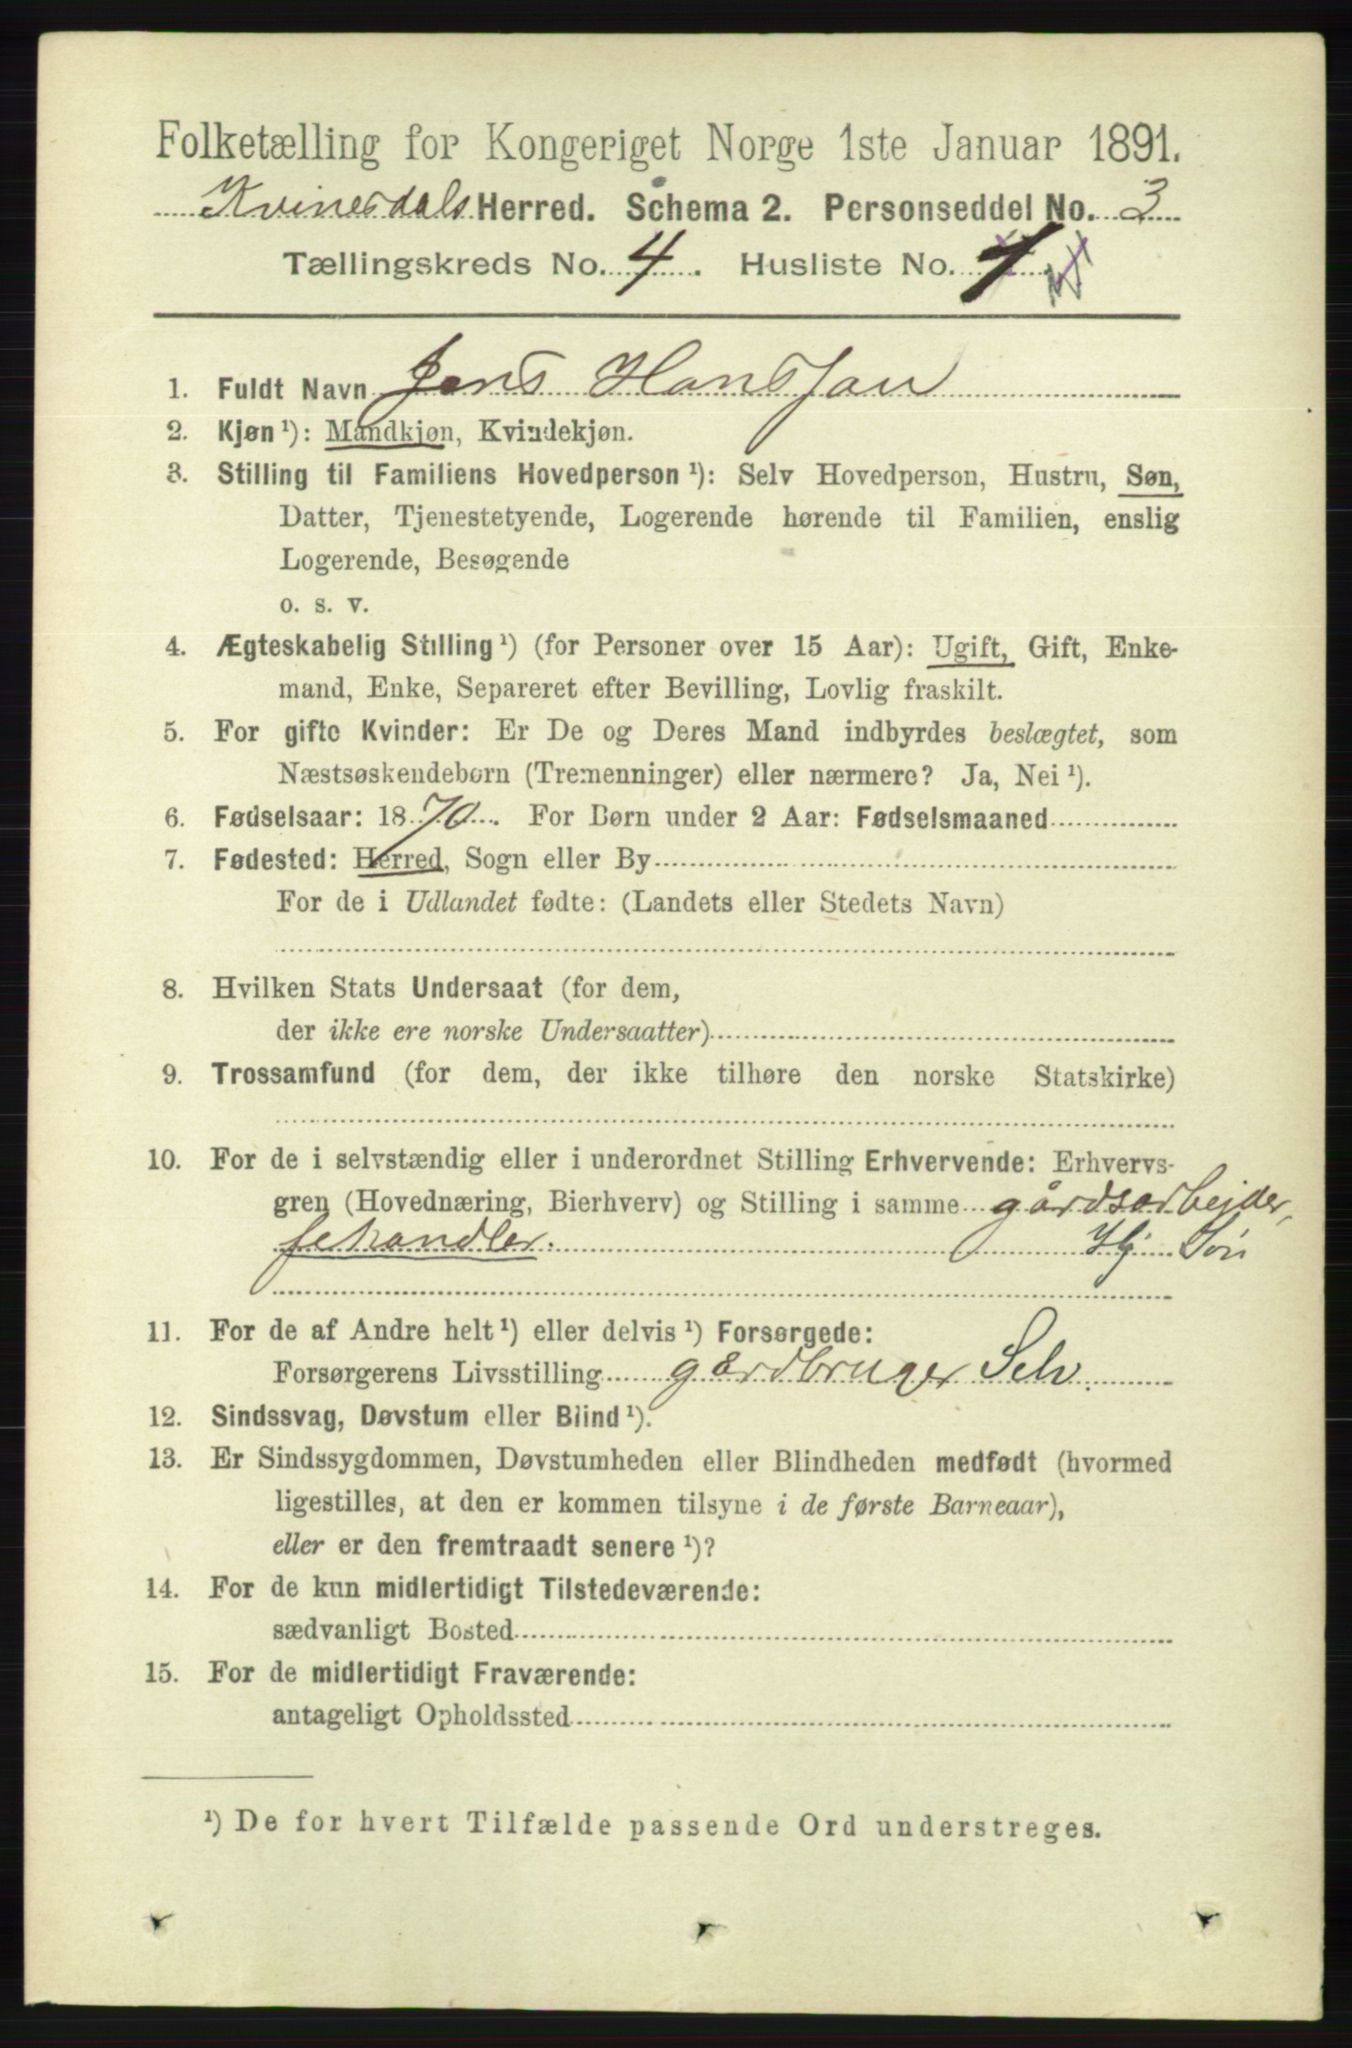 Folketælling for Kongeriget Norge 1ste Januar 1891.
Kvinesdals Herred. Schema 2. Personseddel No. 3
Tællingskreds No. 4. Husliste No. 4
1. Fuldt Navn Jens Hanssen
2. Kjøn ¹): Mandkjøn, Kvindekjøn.
3. Stilling til Familiens Hovedperson ¹): Selv Hovedperson, Hustru, Søn,
Datter, Tjenestetyende, Logerende hørende til Familien, enslig
Logerende, Besøgende
o. s. v.
4. Ægteskabelig Stilling ¹) (for Personer over 15 Aar): Ugift, Gift, Enke-
mand, Enke, Separeret efter Bevilling, Lovlig fraskilt.
5. For gifte Kvinder: Er De og Deres Mand indbyrdes beslægtet, som
Næstsøskendebørn (Tremenninger) eller nærmere? Ja, Nei ¹).
6. Fødselsaar: 1870. For Børn under 2 Aar: Fødselsmaaned
7. Fødested: Herred, Sogn eller By
For de i Udlandet fødte: (Landets eller Stedets Navn)
8. Hvilken Stats Undersaat (for dem,
der ikke ere norske Undersaatter)
9. Trossamfund (for dem, der ikke tilhøre den norske Statskirke)
10. For de i selvstændig eller i underordnet Stilling Erhvervende: Erhvervs-
gren (Hovednæring, Bierhverv) og Stilling i samme gårdsarbejder,
fehandler. Hj Søn
11. For de af Andre helt ¹) eller delvis ¹) Forsørgede:
Forsørgerens Livsstilling gårdbruger Selv.
12. Sindssvag, Døvstum eller Blind ¹).
13. Er Sindssygdommen, Døvstumheden eller Blindheden medfødt (hvormed
ligestilles, at den er kommen tilsyne i de første Barneaar),
eller er den fremtraadt senere ¹)?
14. For de kun midlertidigt Tilstedeværende:
sædvanligt Bosted
15. For de midlertidigt Fraværende:
antageligt Opholdssted
¹) De for hvert Tilfælde passende Ord understreges.